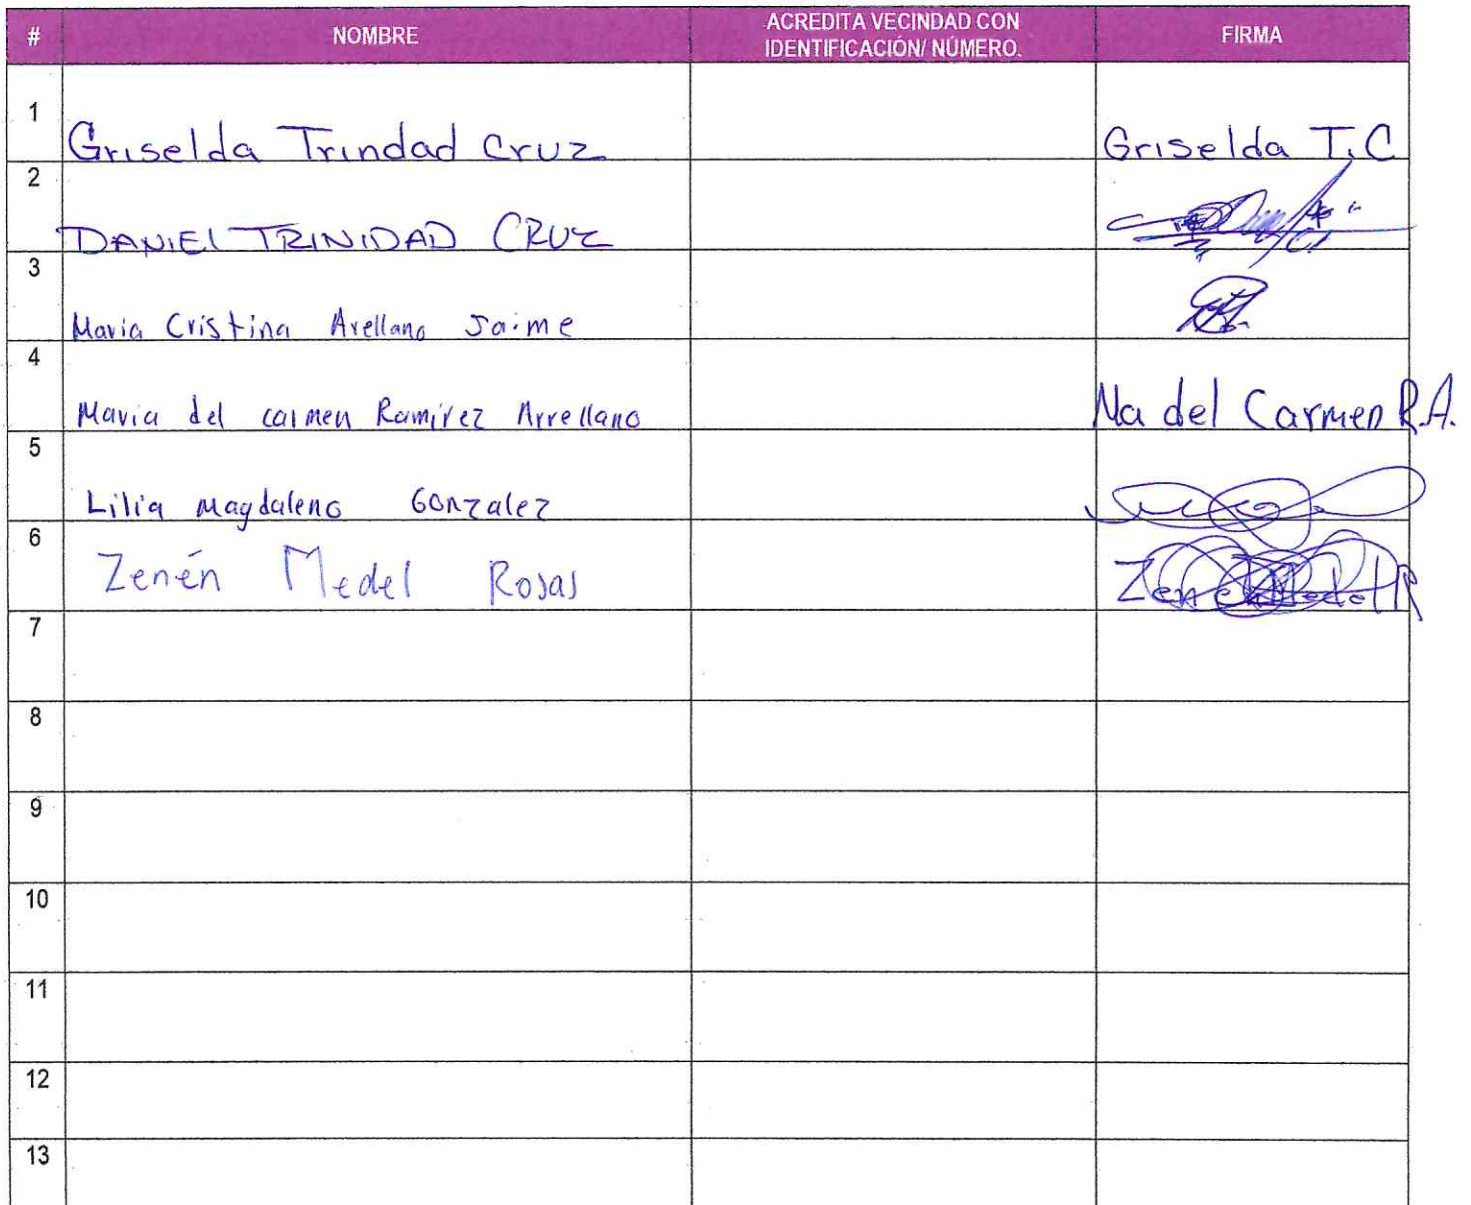 # NOMBRE ACREDITA VECINDAD CON IDENTIFICACIÓN/ NÚMERO. FIRMA
1 Griselda Trindad Cruz Griselda T.C
2 DANIEL TRINIDAD CRUZ
3 Maria Cristina Arellano Jaime
4 Maria del carmen Ramirez Arrellano Ma del Carmen R.A.
5 Lilia Magdaleno Gonzalez
6 Zenén Medel Rosas Zenen Medel R
7
8
9
10
11
12
13